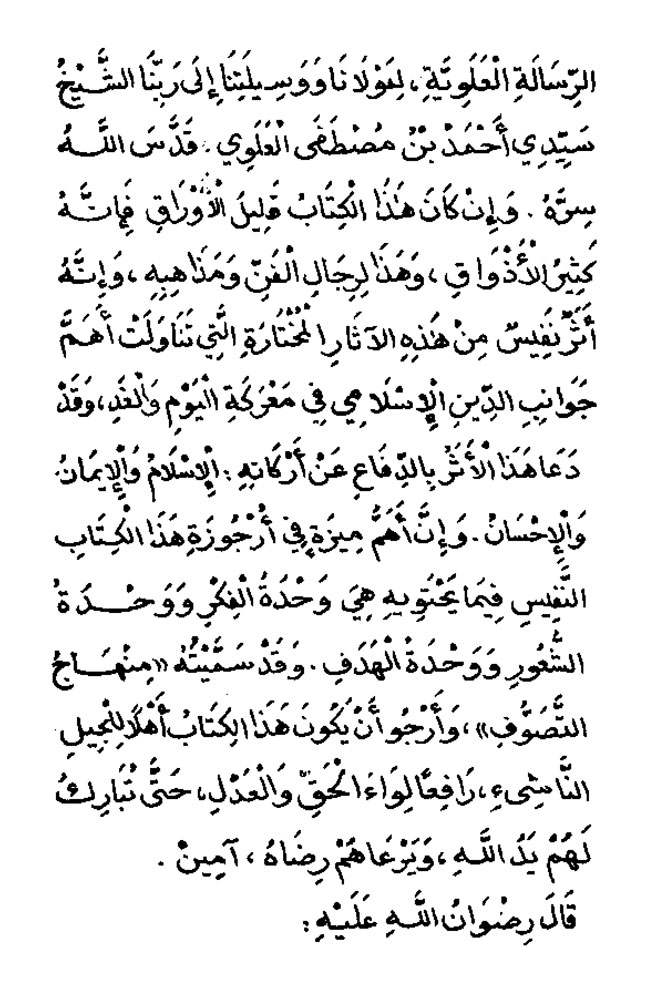 الرِّسَالَةِ الْعَلَوِيَّةِ، لِمَوْلَانَا وَوَسِيلَتِنَا إِلَى رَبِّنَا الشَّيْخُ
سَيِّدِي أَحْمَدْ بْنُ مُصْطَفَى الْعَلَوِي. قَدَّسَ اللَّهُ
سِرَّهُ. وَإِنْ كَانَ هَذَا الْكِتَابُ قَلِيلَ الْأَوْرَاقِ فَإِنَّهُ
كَثِيرُ الْأَذْوَاقِ، وَهَذَا لِرِجَالِ الْفَنِّ وَمَذَاهِبِهِ، وَإِنَّهُ
أَثَرٌ نَفِيسٌ مِنْ هَذِهِ الآثَارِ الْمُخْتَارَةِ الَّتِي تَنَاوَلَتْ أَهَمَّ
جَوَانِبِ الدِّينِ الْإِسْلَامِي فِي مَعْرَكَةِ الْيَوْمِ وَالْغَدِ، وَقَدْ
دَعَا هَذَا الْأَثَرُ بِالدِّفَاعِ عَنْ أَرْكَانِهِ: الْإِسْلَامُ وَالْإِيمَانُ
وَالْإِحْسَانُ. وَإِنَّ أَهَمَّ مِيزَةٍ فِي أُرْجُوزَةِ هَذَا الْكِتَابِ
النَّفِيسِ فِيمَا يَحْتَوِيهِ هِيَ وَحْدَةُ الْفِكْرِ وَوَحْدَةُ
الشُّعُورِ وَوَحْدَةُ الْهَدَفِ. وَقَدْ سَمَّيْتُهُ «مِنْهَاجُ
التَّصَوُّفِ»، وَأَرْجُو أَنْ يَكُونَ هَذَا الْكِتَابُ أَهْلًا لِلْجِيلِ
النَّاشِىءِ، رَافِعًا لِوَاءَ الْحَقِّ وَالْعَدْلِ، حَتَّى تُبَارِكُ
لَهُمْ يَدُ اللَّهِ، وَيَرْعَاهُمْ رِضَاهُ، آمِينْ.
قَالَ رِضْوَانُ اللَّهِ عَلَيْهِ: